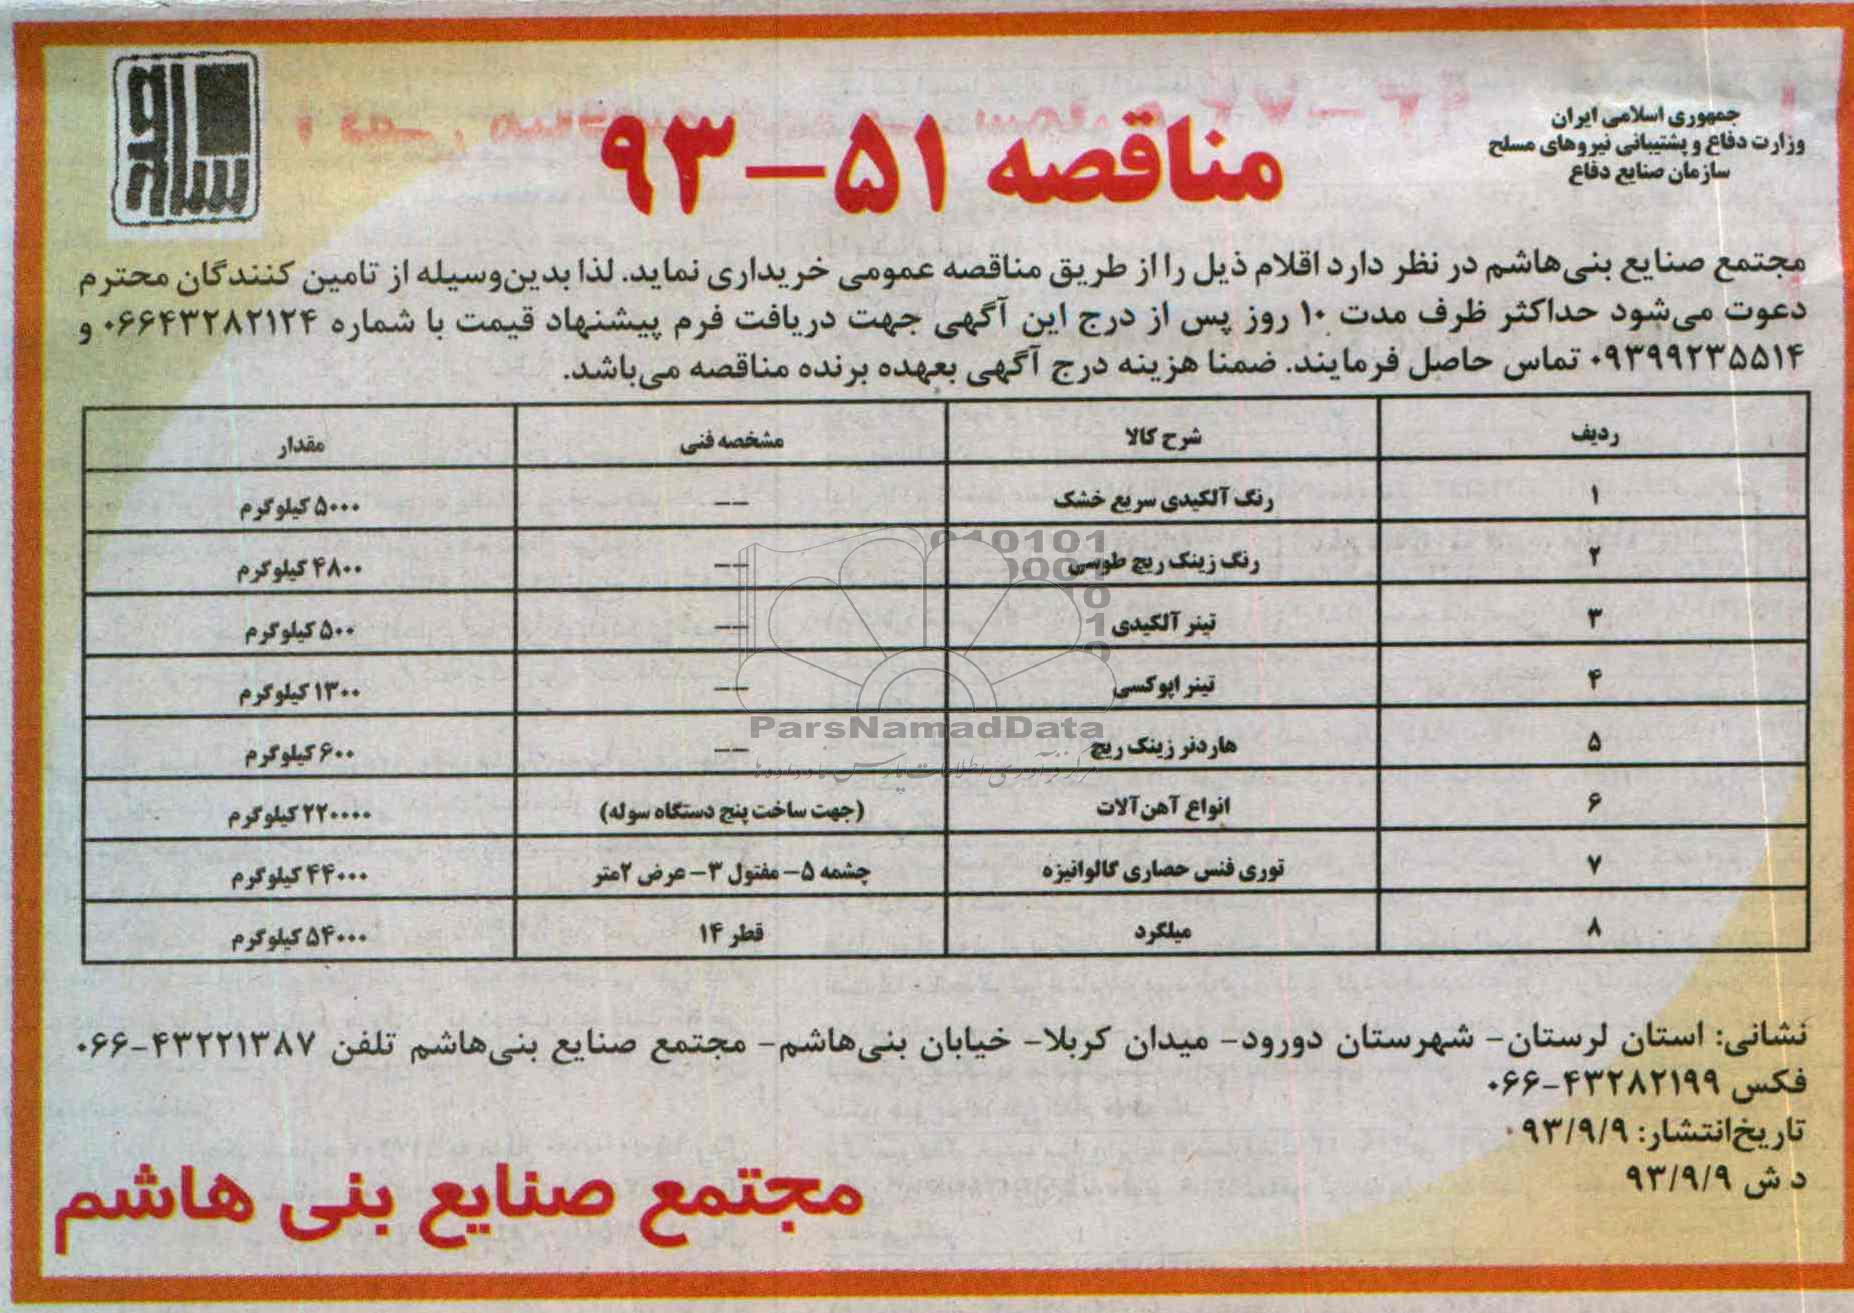 جمهوری اسلامی ایران
وزارت دفاع و پشتیبانی نیروهای مسلح
سازمان صنایع دفاع
مناقصه ۵۱-۹۳
مجتمع صنایع بنی‌هاشم در نظر دارد اقلام ذیل را از طریق مناقصه عمومی خریداری نماید. لذا بدین‌وسیله از تامین کنندگان محترم
دعوت می‌شود حداکثر ظرف مدت ۱۰ روز پس از درج این آگهی جهت دریافت فرم پیشنهاد قیمت با شماره ۰۶۶۴۳۲۸۲۱۲۴ و
۰۹۳۹۹۲۳۵۵۱۴ تماس حاصل فرمایند. ضمنا هزینه درج آگهی بعهده برنده مناقصه می‌باشد.
ردیف شرح کالا مشخصه فنی مقدار
۱ رنگ آلکیدی سریع خشک -- ۵۰۰۰ کیلوگرم
۲ رنگ زینک ریچ طوسی -- ۴۸۰۰ کیلوگرم
۳ تینر آلکیدی -- ۵۰۰ کیلوگرم
۴ تینر اپوکسی -- ۱۳۰۰ کیلوگرم
۵ هاردنر زینک ریچ -- ۶۰۰ کیلوگرم
۶ انواع آهن‌آلات (جهت ساخت پنج دستگاه سوله) ۲۲۰۰۰۰ کیلوگرم
۷ توری فنس حصاری گالوانیزه چشمه ۵- مفتول ۳- عرض ۲متر ۴۴۰۰۰ کیلوگرم
۸ میلگرد قطر ۱۴ ۵۴۰۰۰ کیلوگرم
ParsNamadData
نشانی: استان لرستان- شهرستان دورود- میدان کربلا- خیابان بنی‌هاشم- مجتمع صنایع بنی‌هاشم تلفن ۴۳۲۲۱۳۸۷-۰۶۶
فکس ۴۳۲۸۲۱۹۹-۰۶۶
تاریخ‌انتشار: ۹۳/۹/۹
د ش ۹۳/۹/۹
مجتمع صنایع بنی هاشم